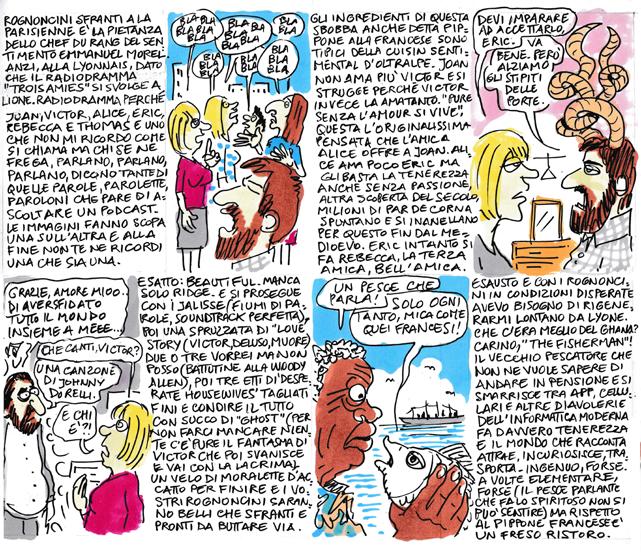 ROGNONCINI SFRANTI A LA
PARISIENNE E' LA PIETANZA
DELLO CHEF DU RANG DEL SEN
TIMENTO EMMANUEL MOREL.
ANZI, ALLA LYONNAIS, DATO
CHE IL RADIODRAMMA
"TROIS AMIES" SI SVOLGE A
LIONE. RADIODRAMMA PERCHÉ
JOAN, VICTOR, ALICE, ERIC,
REBECCA E THOMAS E UNO
CHE NON MI RICORDO COME
SI CHIAMA MA CHI SE NE
FREGA, PARLANO, PARLANO,
PARLANO, DICONO TANTE DI
QUELLE PAROLE, PAROLETTE,
PAROLONI CHE PARE DI A-
SCOLTARE UN PODCAST.
LE IMMAGINI FANNO SCOPA
UNA SULL'ALTRA E ALLA
FINE NON TE NE RICORDI
UNA CHE SIA UNA.
BLA BLA
BLA
BLA BLA
BLA BLA
BLA BLA
BLA
BLA
BLA
BLA
BLA
BLA
BLA
BLA
BLA
GLI INGREDIENTI DI QUESTA
SBOBBA ANCHE DETTA PIP-
PONE ALLA FRANCESE SONO
TIPICI DELLA CUISIN SENTI-
MENTAL D'OLTRALPE. JOAN
NON AMA PIU' VICTOR E SI
STRUGGE PERCHÉ VICTOR
INVECE LA AMA TANTO. "PURE
SENZA L'AMOUR SI VIVE"
QUESTA L'ORIGINALISSIMA
PENSATA CHE L'AMICA
ALICE OFFRE A JOAN. ALI-
CE AMA POCO ERIC MA
GLI BASTA LA TENEREZZA
ANCHE SENZA PASSIONE,
ALTRA SCOPERTA DEL SECOLO
MILIONI DI PAR DE CORNA
SPUNTANO E SI INANELLANO
PER QUESTO FIN DAL ME-
DIOEVO. ERIC INTANTO SI
FA REBECCA, LA TERZA
AMICA, BELL'AMICA.
DEVI IMPARARE
AD ACCETTARLO,
ERIC.
VA
BENE. PERÒ
ALZIAMO
GLI STIPITI
DELLE
PORTE.
GRAZIE, AMORE MIOO..
DI AVER SFIDATO
TUTTO IL MONDO
INSIEME A MÈEE....
CHE CANTI, VICTOR?
UNA CANZONE
DI JOHNNY
DORELLI.
E CHI
E'?!
ESATTO: BEAUTIFUL. MANCA
SOLO RIDGE. E SI PROSEGUE
CON I JALISSE (FIUMI DI PA-
ROLE, SOUNDTRACK PERFETTA),
POI UNA SPRUZZATA DI "LOVE
STORY (VICTOR, DELUSO, MUORE)
DUE O TRE VORREI MA NON
POSSO (BATTUTINE ALLA WOODY
ALLEN), POI TRE ETTI DI "DESPE,
RATE HOUSEWIVES" TAGLIATI
FINI E CONDIRE IL TUTTO
CON SUCCO DI "GHOST" (PER
NON FARCI MANCARE NIEN,
TE C'E' PURE IL FANTASMA DI
VICTOR CHE POI SVANISCE
E VAI CON LA LACRIMA),
UN VELO DI MORALETTA D'AC
CATTO PER FINIRE E I VO,
STRI ROGNONCINI SARAN,
NO BELLI CHE SFRANTI E
PRONTI DA BUTTARE VIA.
UN PESCE CHE
PARLA!
SOLO OGNI
TANTO, MICA COME
QUEI FRANCESI!
ESAUSTO E CON I ROGNONCI,
NI IN CONDIZIONI DISPERATE
AVEVO BISOGNO DI RIGENE,
RARMI LONTANO DA LYONE.
CHE C'IERA MEGLIO DEL GHANA?
CARINO, "THE FISHERMAN"!
IL VECCHIO PESCATORE CHE
NON NE VUOLE SAPERE DI
ANDARE IN PENSIONE E SI
SMARRISCE TRA APP, CELLU,
LARI E ALTRE DIAVOLERIE
DELL'INFORMATICA MODERNA
FA DAVVERO TENEREZZA
E IL MONDO CHE RACCONTA
ATTRAE, INCURIOSISCE, TRA,
SPORTA. INGENUO, FORSE.
A VOLTE ELEMENTARE,
FORSE (IL PESCE PARLANTE
CHE FA LO SPIRITOSO NON SI
PUO' SENTIRE) MA RISPETTO
AL PIPPONE FRANCESE E'
UN FRESO RISTORO.